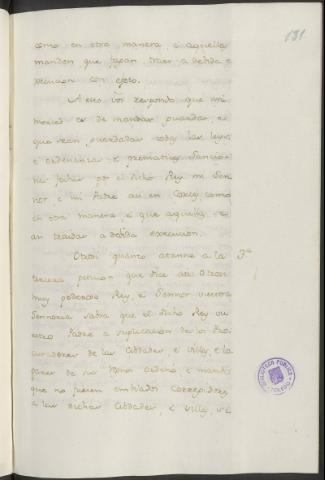 131
como en otra manera, e aquella
manden que sean traer a debida e
xecucion con efeto.
A esto vos respondo que mi
merced es de mandar guardar, e
que sean guardadas todas las leyes
e ordenanzas e prematicas sancio
nes fechas por el dicho Rey mi Se
ñor e mi Padre asi en Cortes como
en otra manera, e que aquellas se
an traidas a debida execucion.
Otrosi quanto atanne a la 3ª
tercera peticion que dice asi: Otrosi
muy poderoso Rey, e Sennor vuestra
Sennoria sabra que el dicho Rey vu
estro Padre a suplicacion de los Pro
curadores de las Cibdades, e villas, e la
mando
que no fuesen embiados Corregidores
a las dichas Cibdades, e villas, sal
BIBLIOTECA PUBLICA
TOLEDO